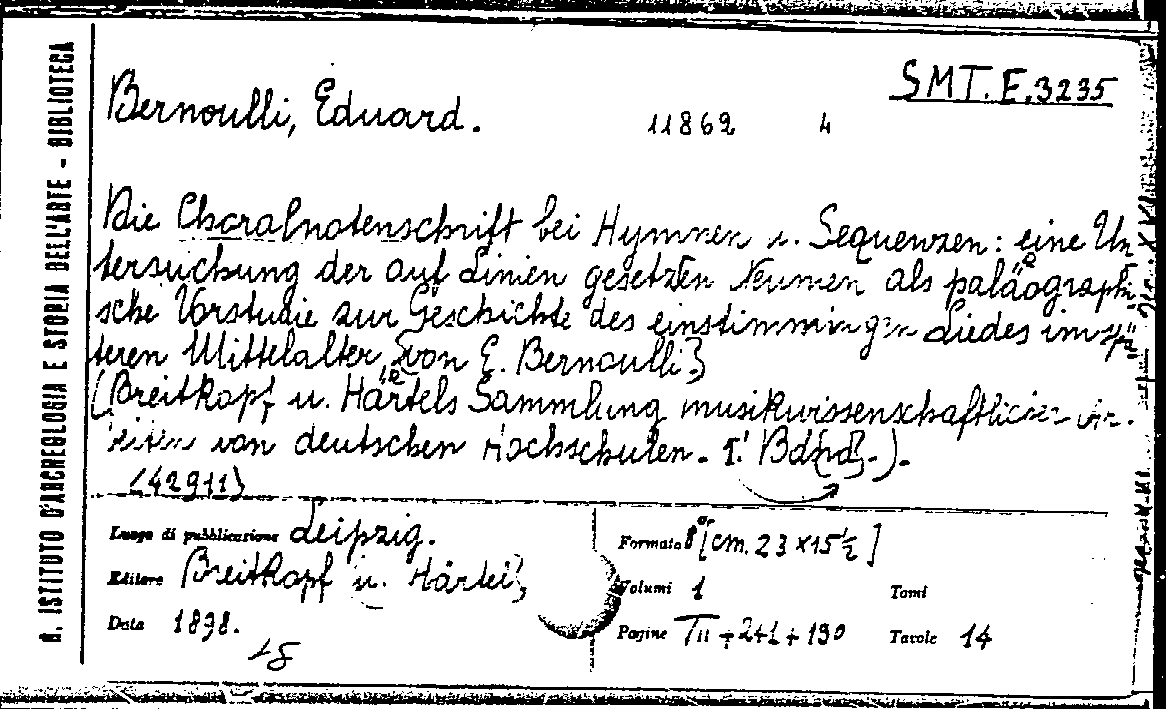 R. ISTITUTO D'ARCHEOLOGIA E STORIA DELL'ARTE - BIBLIOTECA
SMT. E. 3235
Bernoulli, Eduard.
11869 4
Die Choralnotenschrift bei Hymnen u. Sequenzen: eine Un
tersuchung der auf Linien gesetzten Neumen als paläographi
sche Vorstudie zur Geschichte des einstimmigen Liedes im spä
teren Mittelalter, [von E. Bernoulli]
(Breitkopf u. Härtels Sammlung musikwissenschaftlicher Ar-
beiten von deutschen Hochschulen. I. Bd.).
(42911)
Luogo di pubblicazione Leipzig.
Formato 8° [cm. 23 x 15 ½]
Editore Breitkopf u. Härtel,
Volumi 1 Tomi
Data 1898.
Pagine + 241 + 190 Tavole 14
18